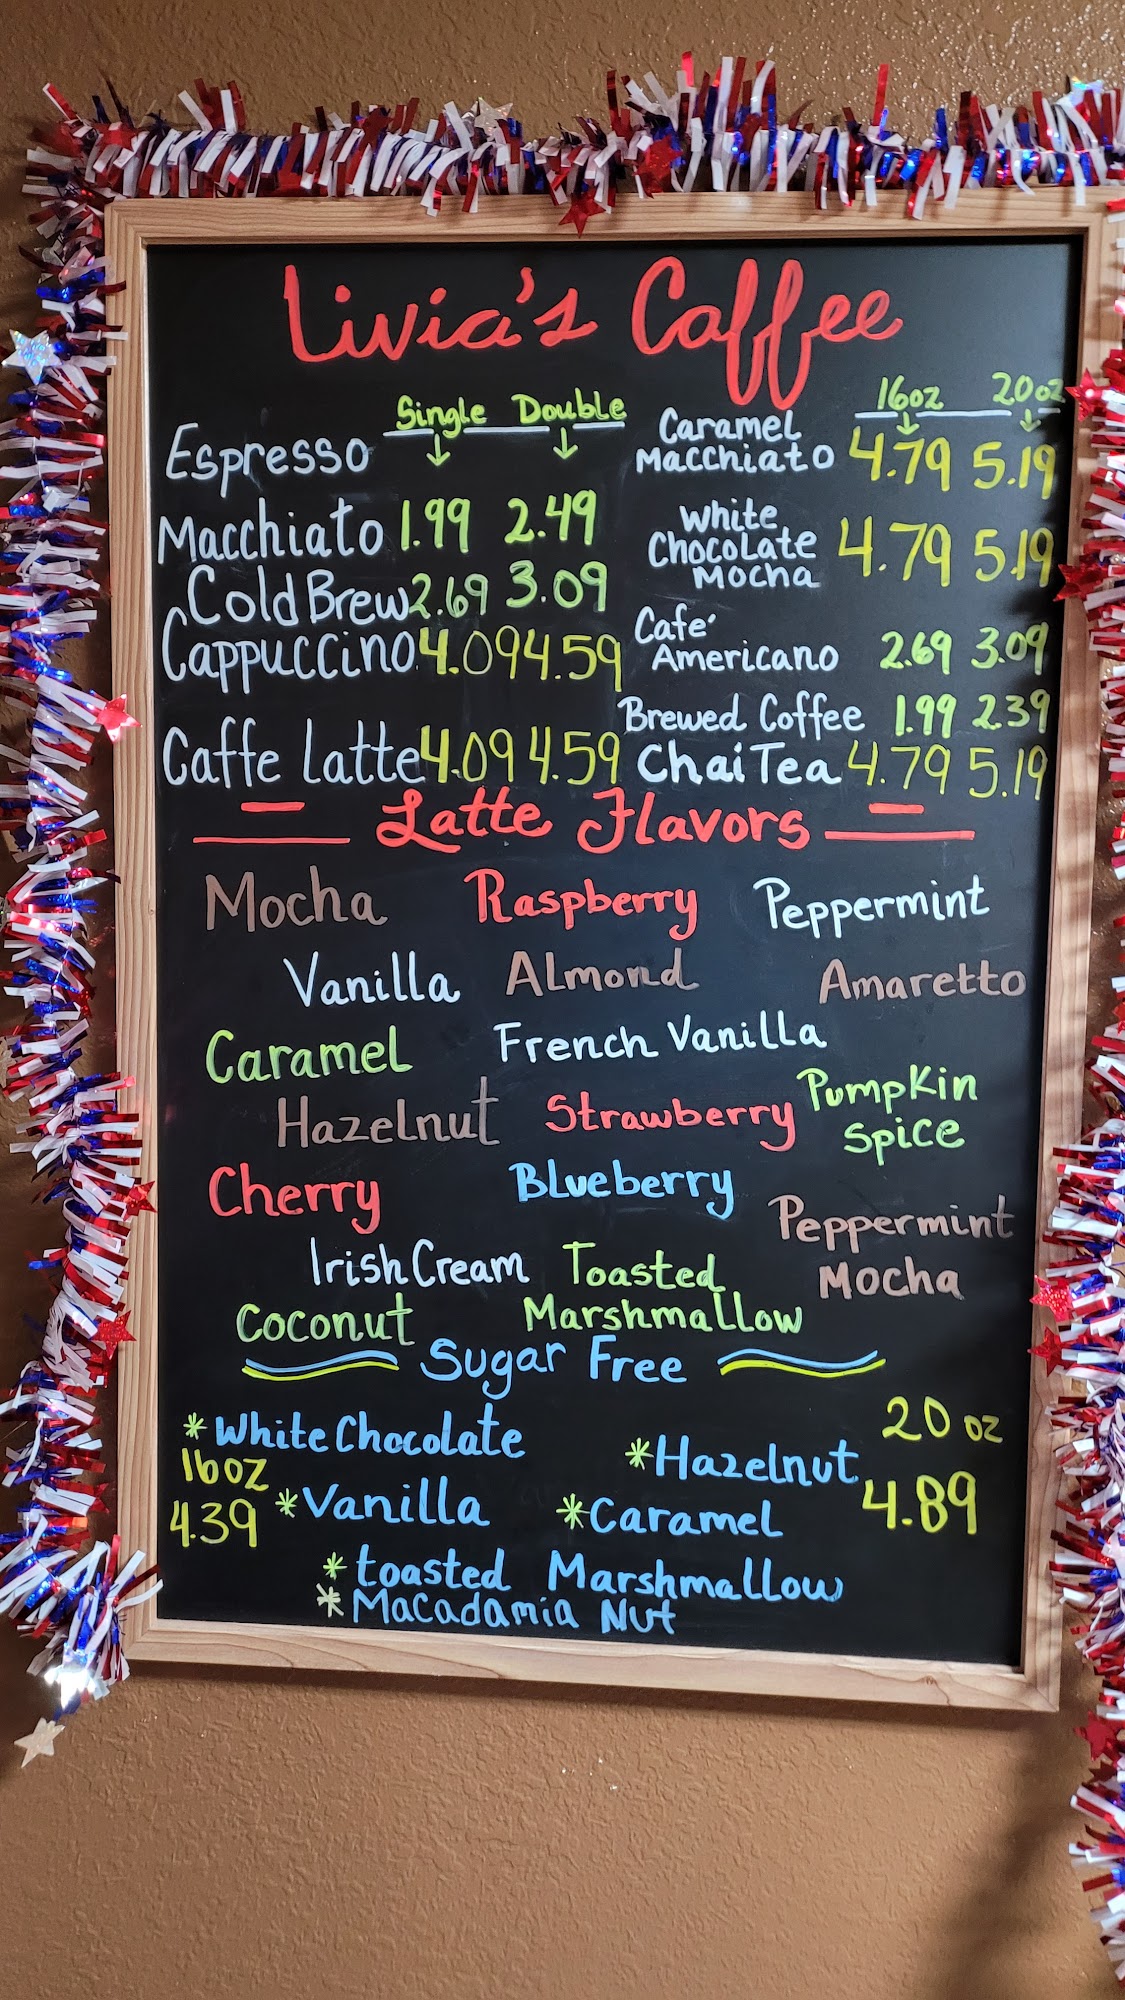 Livia's Coffee
Single Double
Espresso
Macchiato 1.99 2.49
Cold Brew 2.69 3.09
Cappuccino 4.09 4.59
Caffe Latte 4.09 4.59
16oz 20oz
Caramel
Macchiato 4.79 5.19
White
Chocolate
Mocha 4.79 5.19
Cafe'
Americano 2.69 3.09
Brewed Coffee 1.99 2.39
Chai Tea 4.79 5.19
Latte Flavors
Mocha Raspberry Peppermint
Vanilla Almond Amaretto
Caramel French Vanilla
Hazelnut Strawberry Pumpkin
Spice
Cherry Blueberry
Peppermint
Mocha
Irish Cream Toasted
Marshmallow
Coconut
Sugar Free
*White Chocolate
*Hazelnut
20 oz
4.89
16oz
4.39
*Vanilla *Caramel
*toasted Marshmallow
*Macadamia Nut